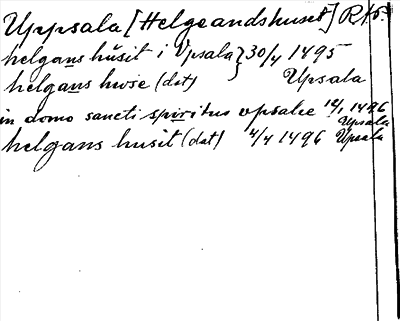 Uppsala [Helgeandshuset]
helgans hŭsit i Vpsala } 30/4 1495
helgans hwse (dat) Upsala
in domo sancti spiritus vpsalie 12/1 1496 Upsala
helgans husit (dat) 4/4 1496 Upsala